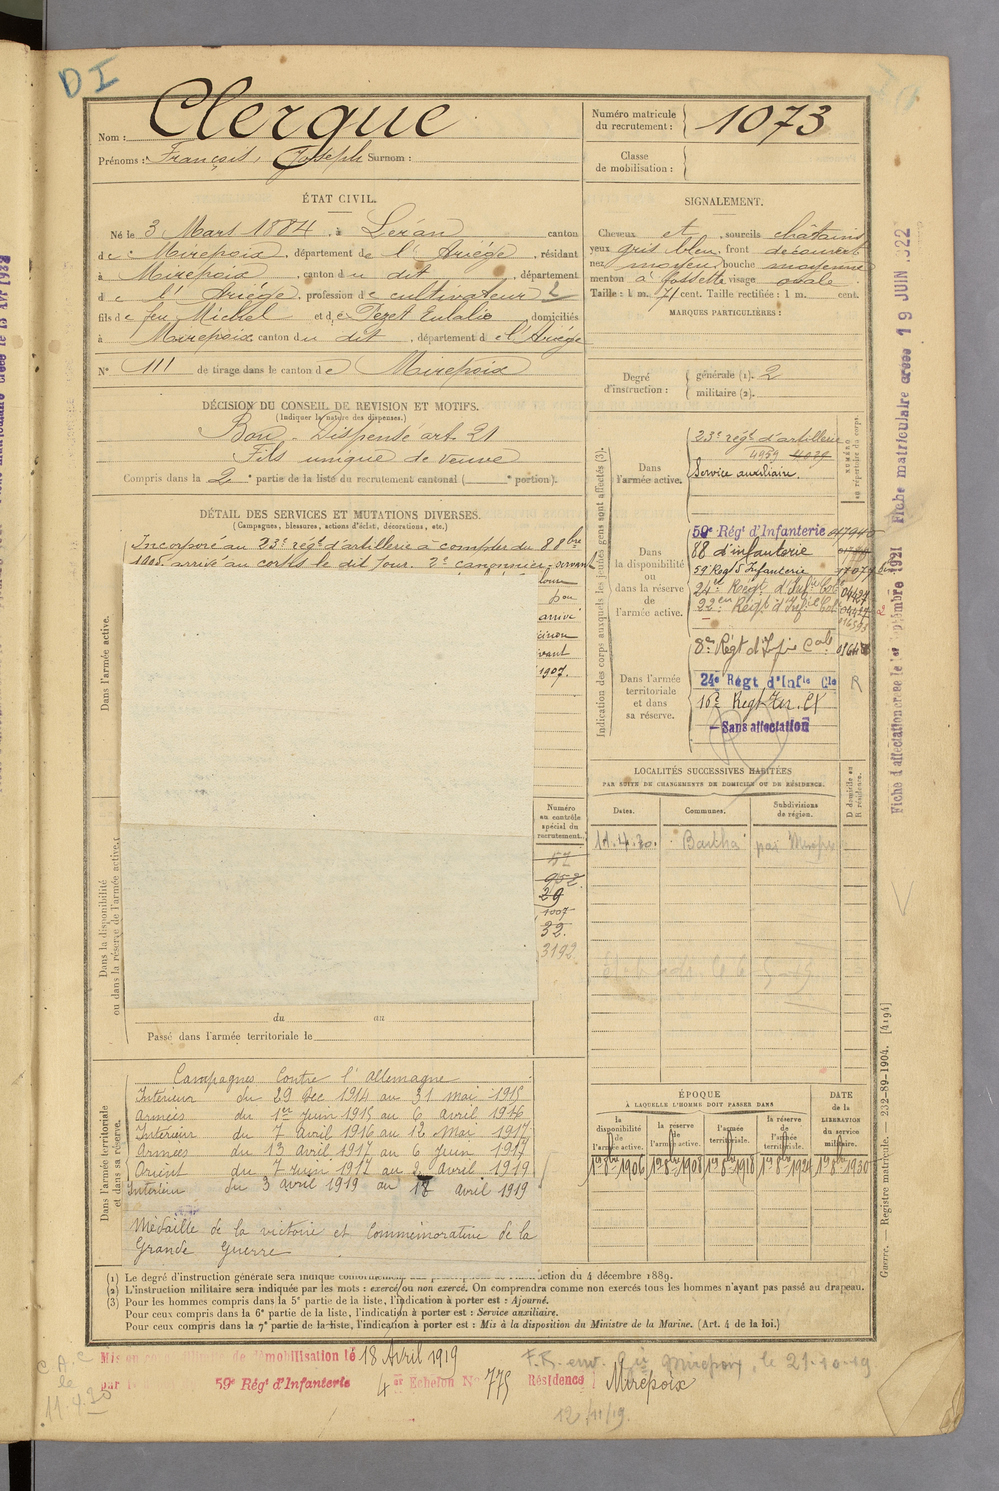 DI
Nom : Clergue
Prénoms : François, Joseph Surnom :
Numéro matricule du recrutement : 1073
Classe de mobilisation :
ÉTAT CIVIL.
Né le 3 Mars 1884, à Léran canton
de Mirepoix, département de l'Ariège, résidant
à Mirepoix, canton du dit, département
de l'Ariège, profession de cultivateur
fils de feu Michel et de Pezet Eulalie domiciliés
à Mirepoix canton du dit, département de l'Ariège
N° 111 de tirage dans le canton de Mirepoix
SIGNALEMENT.
Cheveux et sourcils châtains
yeux gris bleu, front découvert
nez moyen, bouche moyenne
menton à fossette visage ovale
Taille : 1 m. 71 cent. Taille rectifiée : 1 m. cent.
MARQUES PARTICULIÈRES :
Degré d'instruction : générale (1). 2
militaire (2).
DÉCISION DU CONSEIL DE REVISION ET MOTIFS.
(Indiquer la nature des dispenses.)
Bon. Dispensé art. 21
Fils unique de veuve
Compris dans la 2e partie de la liste du recrutement cantonal ( e portion).
DÉTAIL DES SERVICES ET MUTATIONS DIVERSES.
(Campagnes, blessures, actions d'éclat, décorations, etc.)
Incorporé au 23e régt d'artillerie à compter du 8 8bre
1905, arrivé au corps le dit jour. 2e canonnier servant
arrivé
1907.
Dans l'armée active.
Dans la disponibilité ou dans la réserve de l'armée active.
Numéro au contrôle spécial du recrutement.
57
952
29
1007
32.
3192
du au
Passé dans l'armée territoriale le
Dans l'armée territoriale et dans sa réserve.
Campagnes Contre l'Allemagne
Intérieur du 29 Dec 1914 au 31 mai 1915
Armées du 1er Juin 1915 au 6 avril 1916
Intérieur du 7 avril 1916 au 12 Mai 1917
Armées du 13 avril 1917 au 6 Juin 1917
Orient du 7 Juin 1917 au 2 avril 1919
Intérieur du 3 avril 1919 au 17 avril 1919
Médaille de la victoire et Commémorative de la
Grande Guerre
Indication des corps auxquels les jeunes gens sont affectés (3).
NUMÉRO au répertoire du corps.
Dans l'armée active.
23e régt d'artillerie
4959 4089
Service auxiliaire.
Dans la disponibilité ou dans la réserve de l'armée active.
59e Régt d'Infanterie
88 d'infanterie
59 Regt d'Infanterie
24e Régt d'Infie Cole 04427
22e Régt d'Infie Cole
8e Régt d'Infie Cale
Dans l'armée territoriale et dans sa réserve.
24e Régt d'Infie Cle R
16e Regt Ter.
Sans affectation
LOCALITÉS SUCCESSIVES HABITÉES
PAR SUITE DE CHANGEMENTS DE DOMICILE OU DE RÉSIDENCE.
D domicile ou R résidence.
Dates. Communes. Subdivisions de région.
11.4.20. par
ÉPOQUE
À LAQUELLE L'HOMME DOIT PASSER DANS
la disponibilité de l'armée active.
la réserve de l'armée active.
l'armée territoriale.
la réserve de l'armée territoriale.
DATE de la LIBÉRATION du service militaire.
1er 8bre 1906 1er 8bre 1908 1er 8bre 1918 1er 8bre 1924 1er 8bre 1930
(1) Le degré d'instruction générale sera indiqué ction du 4 décembre 1889.
(2) L'instruction militaire sera indiquée par les mots : exercé ou non exercé. On comprendra comme non exercés tous les hommes n'ayant pas passé au drapeau.
(3) Pour les hommes compris dans la 5e partie de la liste, l'indication à porter est : Ajourné.
Pour ceux compris dans la 6e partie de la liste, l'indication à porter est : Service auxiliaire.
Pour ceux compris dans la 7e partie de la liste, l'indication à porter est : Mis à la disposition du Ministre de la Marine. (Art. 4 de la loi.)
Mis en de démobilisation le 18 Avril 1919
59e Régt d'Infanterie 4er Echelon N° 775 Résidence Mirepoix
F.R. env. Gie Mirepoix, le 21-10-19
12/11/19.
C.A.C le 11.4.20
Fiche d'affectation créée le 1er Septembre 1921
Fiche matriculaire créée 19 JUIN 1922
Guerre. — Registre matricule. — 232-89-1904. [4194]